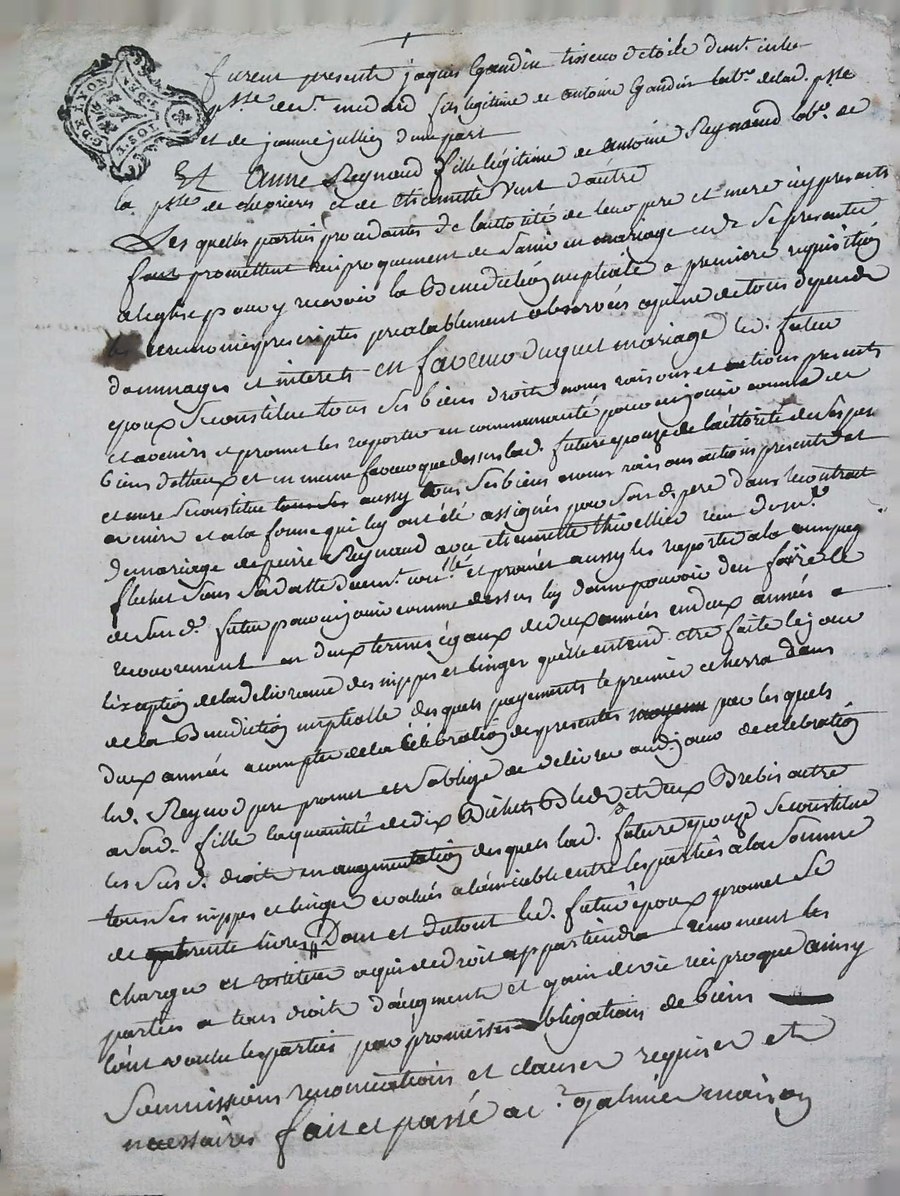 furent presents jaques Gaudin tisseur de toile dem.t en la
psse de s.t medard fils legitime de antoine Gaudin lab.r de lad. psse
et de jeanne jullien d'une part
Et Anne Reynaud fille légitime de antoine Reynaud lab.r de
la psse de chevrieres et de etiennette Vent d'autre
Les quelles parties procedantes de l'autorité de leur pere et mere icy presents
font promettent reciproquement de s'unir en mariage et de se presenter
a l'eglise pour y recevoir la Benediction nuptiale a premiere requisition
les ceremonies prescriptes prealablement observées a peine de tous depends
dommages et interets en faveur duquel mariage led. futur
epoux se constitue tous ses biens droits noms raisons et actions presents
et avenirs et promet les rapporter en communauté pour en jouir comme de
biens dotteaux et en meme faveur que dessus lad. future epouze de l'authorité de ses pere
et mere se constitue tous ses aussy tous ses biens noms raisons actions presents et
avenirs et a la forme qui luy ont été assignés pour son d. pere dans le contrat
de mariage de pierre Reynaud avec etiennette thivellier
flechet sans sa datte et promet aussy les rapporter a la compag
de son d. futur pour en jouir comme dessus luy donne pouvoir d'en faire le
recouvrement en deux termes égaux de deux années en deux années a
l'exception de la delivrance des nippes et linges qu'elle entend etre faite le jour
de la Benediction nuptialle des quels payements le premier echerra dans
deux années a compter de la Celebration des presentes moyenn par les quels
led. Reynod pere promet et s'oblige de delivrer aud. jour de celebration
a sad. fille la quantité de dix Bichets Bled et deux Brebis outre
les sus d. droits en augmentation des quels lad. future epouze se constitue
tous ses nippes et linges evalués a l'émiable entre les parties a la somme
de trente livres Dont et du tout led. futur époux promet se
charger et restituer a qui de droit appartiendra renoncent les
parties a tous droits d'augment et gain de vie reciproque ainsy
l'ont voulu les parties par promesses obligations de biens
soumissions renonciations et clauses requises et
necessaires fait et passé a s.t galmier maison